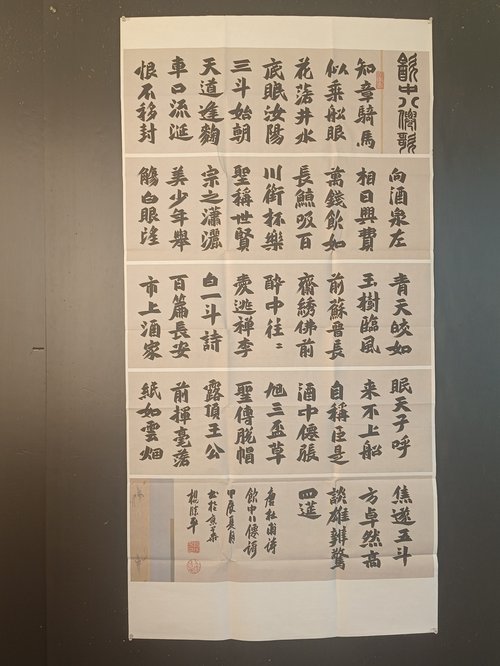 飲中八僊歌
知章騎馬
似乘船眼
花落井水
底眠汝陽
三斗始朝
天道逢麴
車口流涎
恨不移封
向酒泉左
相日興費
萬錢飲如
長鯨吸百
川銜杯樂
聖稱世賢
宗之瀟灑
美少年舉
觴白眼望
青天皎如
玉樹臨風
前蘇晉長
齋繡佛前
醉中往〻
愛逃禪李
白一斗詩
百篇長安
市上酒家
眠天子呼
來不上船
自稱臣是
酒中僊張
旭三盃草
聖傳脫帽
露頂王公
前揮毫落
紙如雲烟
焦遂五斗
方卓然高
談雄辨驚
四筵
唐杜甫詩
飲中八僊詩
甲辰夏月
書於京華